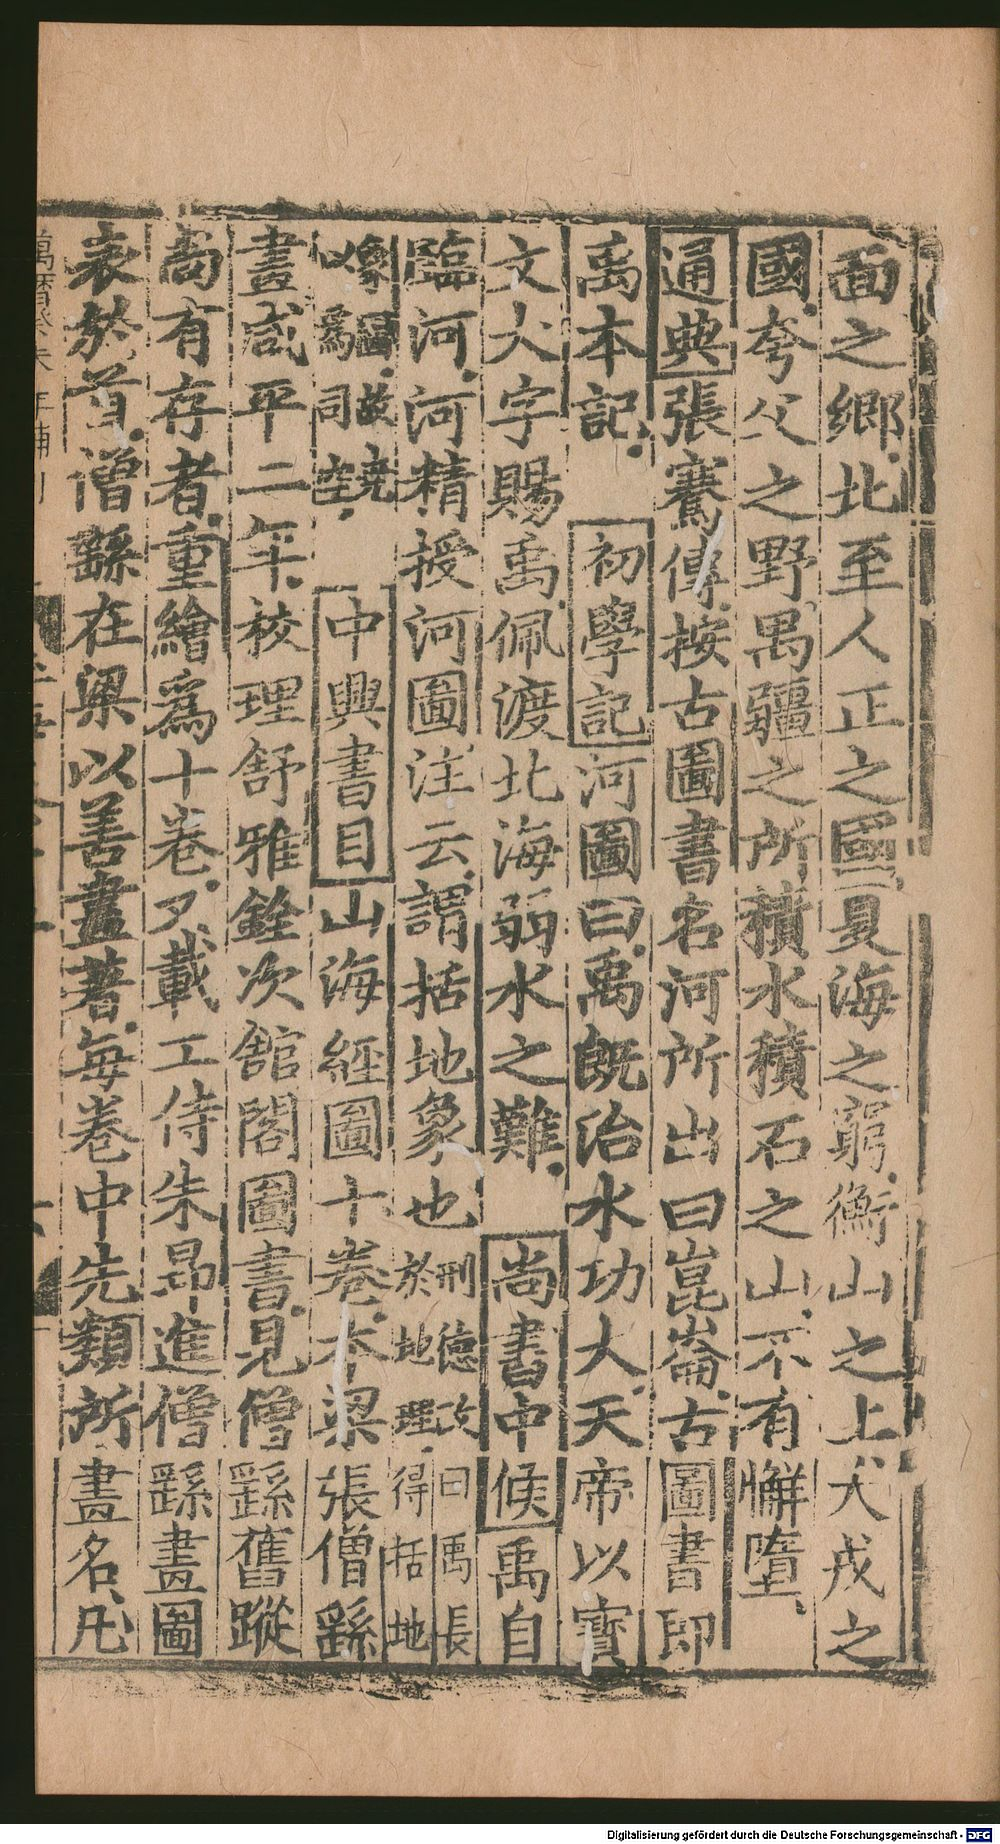 面之鄉北至人正之國夏海之窮衡山之上犬戎之
國夸父之野禺疆之所積水積石之山不有懈墮
通典張騫傳按古圖書名河所出曰崑崙古圖書即
禹本記 初學記河圖曰禹既治水功大天帝以寶
文大字賜禹佩渡北海弱水之難 尚書中候禹自
臨河河精授河圖注云謂括地象也刑德攷曰禹長於地理得括地
象圖故堯以爲司空 中興書目山海經圖十卷本梁張僧繇
畫咸平二年校理舒雅銓次舘閣圖書見僧繇舊蹤
尚有存者重繪爲十卷又載工侍朱昂進僧繇畫圖
表於首僧繇在梁以善畫著每卷中先類所畫名凡
萬曆
Digitalisierung gefördert durch die Deutsche Forschungsgemeinschaft - DFG